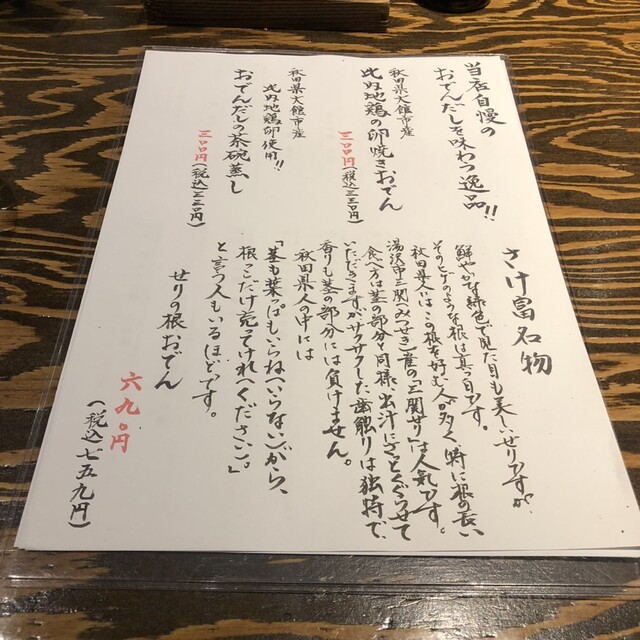 当店自慢の
おでんだしを味わう逸品!!
秋田県大館市産
比内地鶏の卵焼きおでん
三〇〇円(税込三三〇円)
秋田県大館市産
比内地鶏卵使用!!
おでんだしの茶碗蒸し
三〇〇円(税込三三〇円)
さけ富名物
鮮やかな緑色で見た目も美しいせりですが
そのヒゲのような根は真っ白です。
秋田県人はこの根を好む人が多く、特に根の長い
湯沢市三関(みつせき)産の「三関せり」は人気です。
食べ方は茎の部分と同様、出汁にさっとくぐらせて
いただきますがサクサクした歯触りは独特で
香りも茎の部分には負けません。
秋田県人の中には
「茎も葉っぱもいらね(いらない)がら、
根っこだけ売てけれ(ください)。」
と言う人もいるほどです。
せりの根おでん
六九〇円
(税込七五九円)